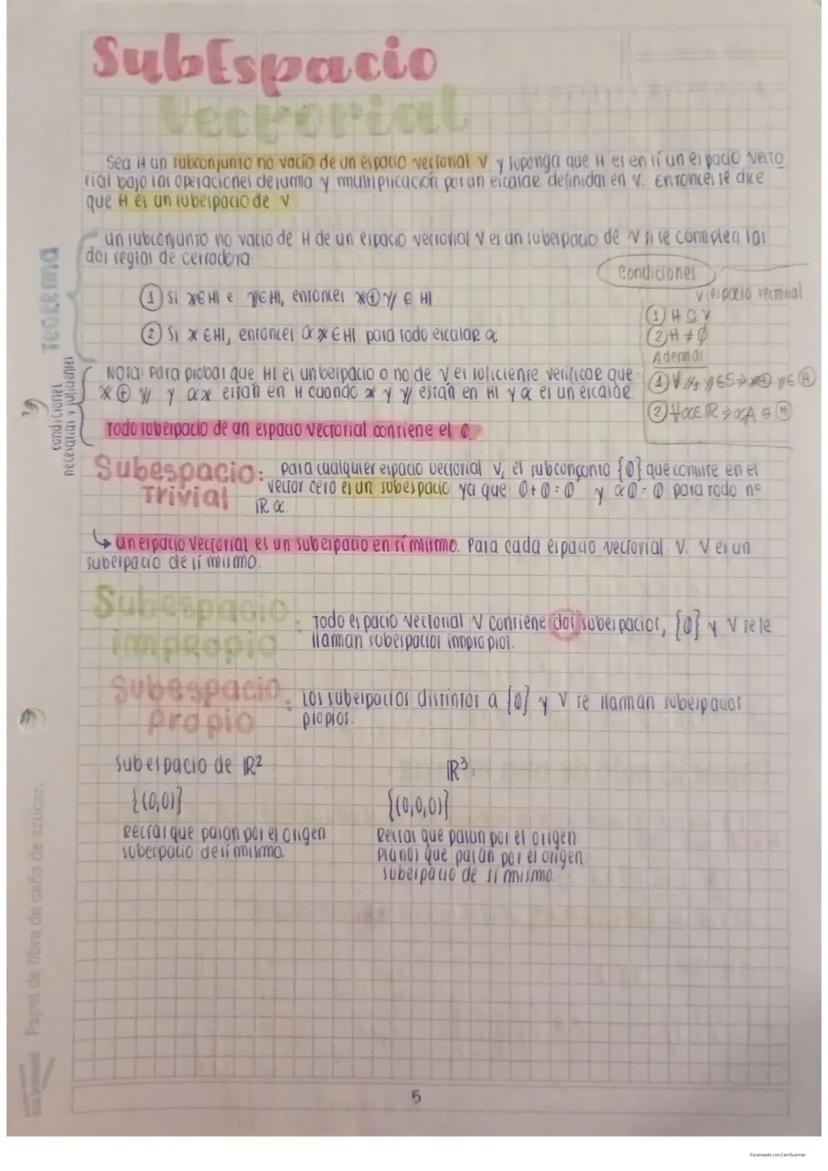 SubEspacio
Vectorial
Sea H un subconjunto no vacío de un espacio vectorial V y suponga que H es en sí un espacio vecto
rial bajo las operaciones de suma y multiplicación por un escalar definidas en V. Entonces se dice
que H es un subespacio de V
Teorema
un subconjunto no vacio de H de un espacio vectorial V es un subespacio de V si se cumplen las
dos reglas de cerradura
① Si x∈H e y∈H, entonces x⊕y ∈ H
② Si x ∈H, entonces αx∈H para todo escalar α
Condiciones
V espacio vectorial
① H ⊆ V
② H ≠ ∅
Además
① ∀ x, y∈S→ x⊕y∈ H
② ∀α∈R → αA ∈ H
condiciones
necesarias y suficientes
Nota: Para probar que H es un bespacio o no de V es suficiente verificar que
x ⊕ y y αx están en H cuando x y y están en H y α es un escalar.
Todo subespacio de un espacio vectorial contiene el 0.
Subespacio Trivial: para cualquier espacio vectorial V, el subconjunto {0} que consiste en el
vector cero es un subespacio ya que 0+0=0 y α0=0 para todo n°
R α.
↳ un espacio vectorial es un subespacio en sí mismo. Para cada espacio vectorial V. V es un
subespacio de sí mismo.
Subespacio impropio: Todo espacio vectorial V contiene dos subespacios, {0} y V se le
llaman subespacios impropios.
Subespacio Propio: Los subespacios distintos a {0} y V se llaman subespacios
propios.
Subespacio de R²
{(0,0)}
Rectas que pasan por el origen
subespacio de sí mismo.
R³
{(0,0,0)}
Rectas que pasan por el origen
Planos que pasan por el origen
subespacio de sí mismo.
Papel de fibra de caña de azúcar.
5
Escaneado con CamScanner